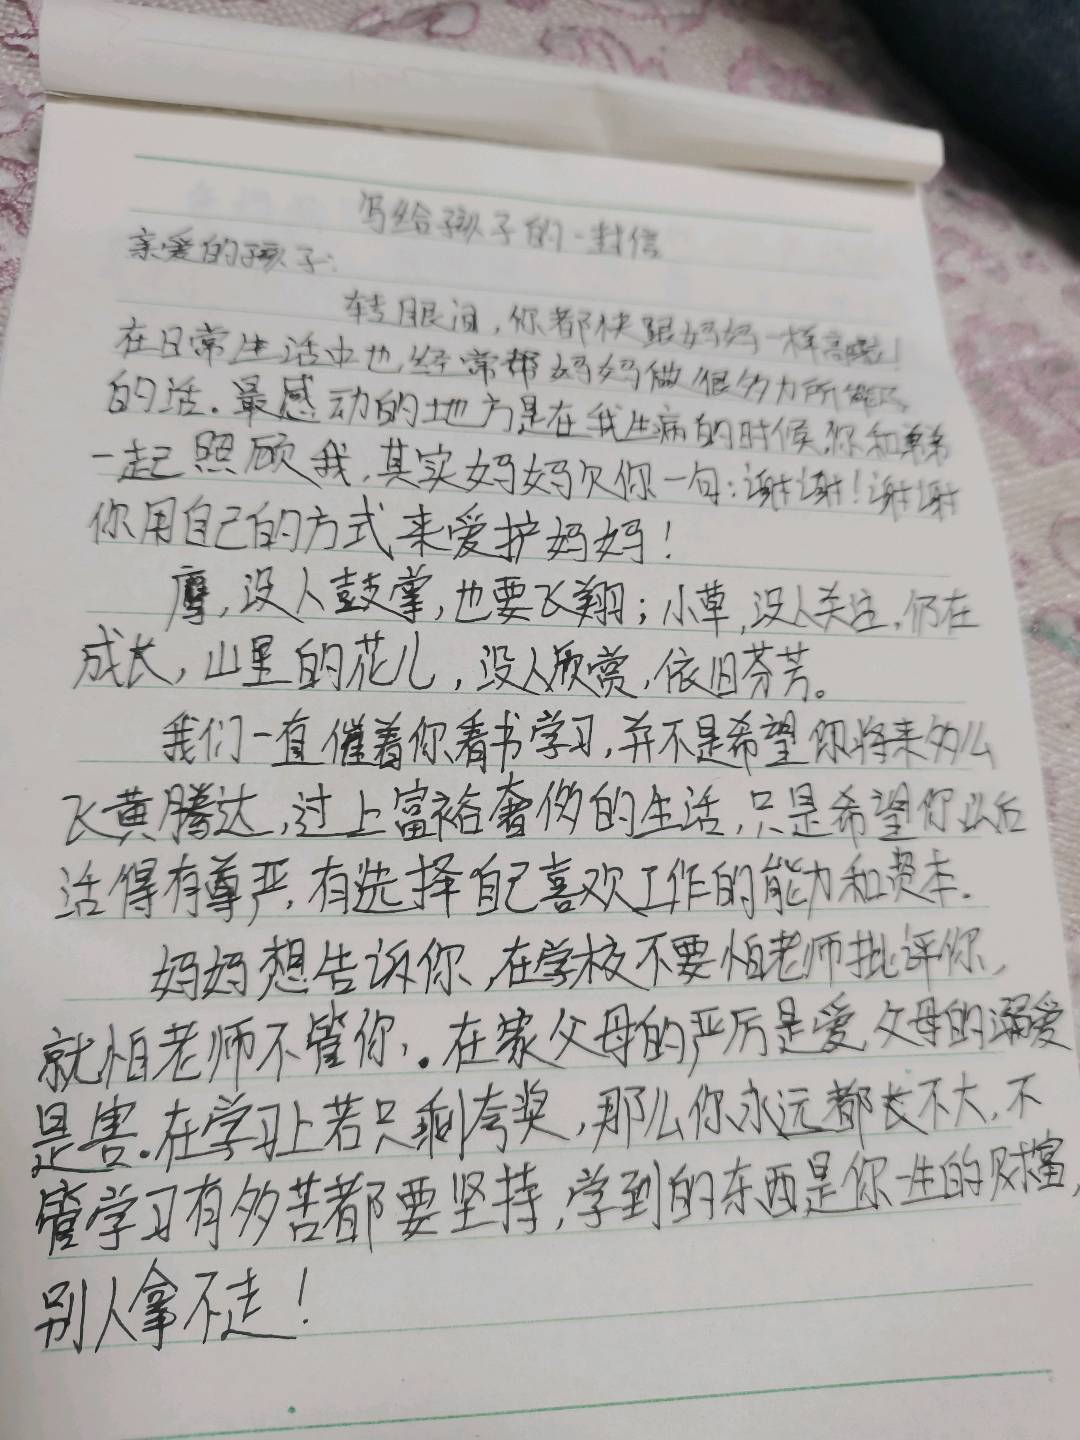 写给孩子的一封信
亲爱的孩子:
转眼间,你都快跟妈妈一样高啦!
在日常生活中也,经常帮妈妈做很多力所能及
的活。最感动的地方是在我生病的时候,你和弟弟
一起照顾我,其实妈妈欠你一句:谢谢!谢谢
你用自己的方式来爱护妈妈!
鹰,没人鼓掌,也要飞翔;小草,没人关注,仍在
成长,山里的花儿,没人欣赏,依旧芬芳。
我们一直催着你看书学习,并不是希望你将来多么
飞黄腾达,过上富裕奢侈的生活,只是希望你以后
活得有尊严,有选择自己喜欢工作的能力和资本.
妈妈想告诉你,在学校不要怕老师批评你,
就怕老师不管你,。在家父母的严厉是爱,父母的溺爱
是害。在学习上若只剩夸奖,那么你永远都长不大,不
管学习有多苦都要坚持,学到的东西是你一生的财富,
别人拿不走!